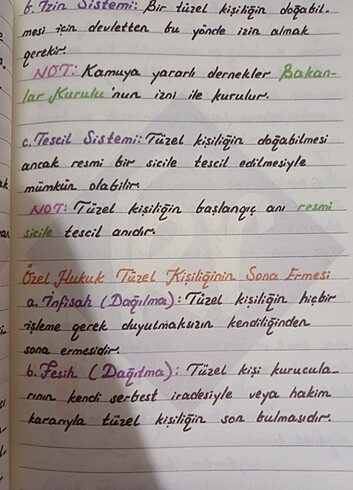 b. İzin Sistemi: Bir tüzel kişiliğin doğabil-
mesi için devletten bu yönde izin almak
gerekir.
NOT: Kamuya yararlı dernekler Bakan-
lar Kurulu'nun izni ile kurulur.
c. Tescil Sistemi: Tüzel kişiliğin doğabilmesi
ancak resmi bir sicile tescil edilmesiyle
mümkün olabilir.
NOT: Tüzel kişiliğin başlangıç anı resmi
sicile tescil anıdır.
Özel Hukuk Tüzel Kişiliğinin Sona Ermesi
a. İnfisah (Dağılma): Tüzel kişiliğin hiçbir
işleme gerek duyulmaksızın kendiliğinden
sona ermesidir.
b. Fesih (Dağıtma): Tüzel kişi kurucula-
rının kendi serbest iradesiyle veya hakim
kararıyla tüzel kişiliğin son bulmasıdır.